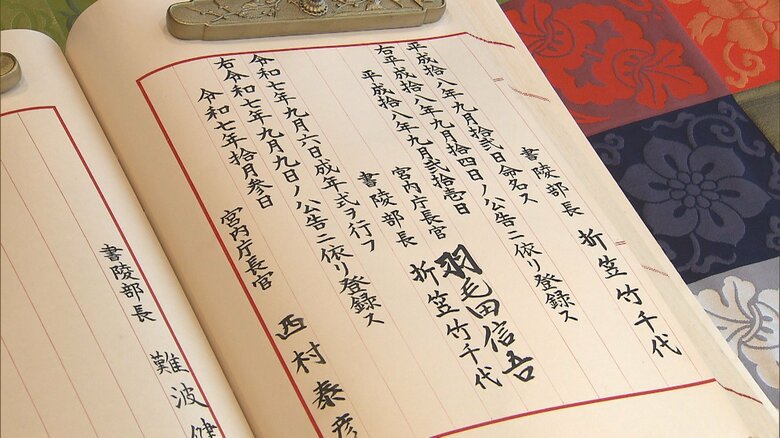 書陵部長 折笠竹千代
平成拾八年九月拾弐日命名ス
右平成拾八年九月拾四日ノ公告ニ依リ登録ス
平成拾八年九月弐拾壱日
宮内庁長官 羽毛田信吾
書陵部長 折笠竹千代
令和七年九月六日成年式ヲ行フ
右令和七年九月九日ノ公告ニ依リ登録ス
令和七年拾月参日
宮内庁長官 西村泰彦
書陵部長 難波健